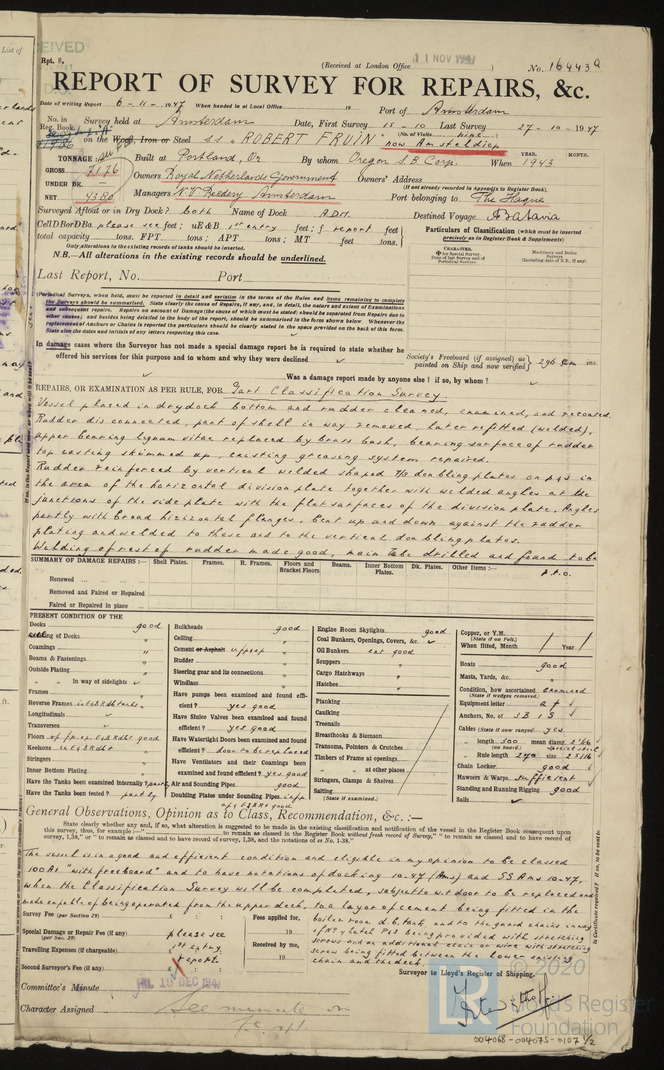 Rpt. 8.
(Received at London Office 11 NOV 1947
No. 16443a
REPORT OF SURVEY FOR REPAIRS, &c.
Date of writing Report 6-11-1947 When handed in at Local Office 19 Port of Amsterdam
No. in Reg. Book. Survey held at Amsterdam Date, First Survey 15-10 Last Survey 27-10-1947
(No. of Visits nine)
on the Wood, Iron or Steel s.s. ROBERT FRUIN now Amsteldiep
TONNAGE: Built at Portland, Or By whom Oregon S.B. Corp. When 1943
YEAR. MONTH.
GROSS 7176 Owners Royal Netherlands Government Owners' Address
(If not already recorded in Appendix to Register Book).
UNDER DK.
NET 4380 Managers N.V. Reederij Amsterdam Port belonging to The Hague
Surveyed Afloat or in Dry Dock? both Name of Dock A.D.M. Destined Voyage Batavia
Cell DBorDBa please see feet; uE&B 1st entry feet; f report feet
total capacity tons. FPT tons; APT tons; MT feet tons.
Only alterations in the existing records of tanks should be inserted.
N.B.—All alterations in the existing records should be underlined.
Particulars of Classification (which must be inserted precisely as in Register Book & Supplements)
Last Report, No. Port
(Periodical Surveys, when held, must be reported in detail and seriatim in the terms of the Rules and items remaining to complete
the Surveys should be summarised. State clearly the cause of Repairs, if any, and, in detail, the nature and extent of Examinations
and subsequent repairs. Repairs on account of Damage (the cause of which must be stated) should be separated from Repairs due to
other causes; and besides being detailed in the body of the report, should be summarised in the form shown below. Whenever the
replacement of Anchors or Chains is reported the particulars should be clearly stated in the space provided on the back of this form.
State also the dates and initials of any letters respecting this case.
In damage cases where the Surveyor has not made a special damage report he is required to state whether he
offered his services for this purpose and to whom and why they were declined
Society's Freeboard (if assigned) as painted on Ship and now verified 296 ins.
Was a damage report made by anyone else? if so, by whom?
REPAIRS, OR EXAMINATION AS PER RULE, FOR Part Classification Survey.
Vessel placed in drydock bottom and rudder cleaned, examined, and recoated.
Rudder disconnected, part of shell in way removed, later refitted (welded),
upper bearing lignum vitae replaced by brass bush, bearing surface of rudder
top casting skimmed up, existing greasing system repaired.
Rudder reinforced by vertical welded shaped doubling plates on p&s in
the area of the horizontal division plate together with welded angles at the
junctions of the side plate with the flat surfaces of the division plate. Angles
partly with broad horizontal flanges, bent up and down against the rudder
plating and welded to these and to the vertical doubling plates.
Welding of rest of rudder made good, main drilled and found to be
P.T.O.
SUMMARY OF DAMAGE REPAIRS:— Shell Plates. Frames. R. Frames. Floors and Bracket Floors Beams. Inner Bottom Plates. Dk. Plates. Other Items:—
Renewed
Removed and Faired or Repaired
Faired or Repaired in place
PRESENT CONDITION OF THE
Decks good
Caulking of Decks "
Coamings "
Beams & Fastenings "
Outside Plating "
" " in way of sidelights
Frames "
Reverse Frames
Longitudinals
Transverses
Floors good
Keelsons
Stringers "
Inner Bottom Plating "
Have the Tanks been examined internally? part
Have the Tanks been tested? partly
Bulkheads good
Ceiling "
Cement or Asphalt
Rudder "
Steering gear and its connections "
Windlass "
Have pumps been examined and found efficient? yes good
Have Sluice Valves been examined and found efficient? yes good
Have Watertight Doors been examined and found efficient? door to be replaced
Have Ventilators and their Coamings been examined and found efficient? yes good
Air and Sounding Pipes good
Doubling Plates under Sounding Pipes
Engine Room Skylights good
Coal Bunkers, Openings, Covers, &c.
Oil Bunkers good
Scuppers "
Cargo Hatchways "
Hatches "
Planking
Caulking
Treenails
Breasthooks & Stemson
Transoms, Pointers & Crutches
Timbers of Frame at openings
" " at other places
Stringers, Clamps & Shelves
Salting (State if examined.)
Copper, or Y.M. (State if on Felt.)
When fitted, Month / Year /
Boats good
Masts, Yards, &c. "
Condition, how ascertained examined
(State if wedges removed.)
Equipment letter
Anchors, No. of 3B 1S
Cables (State if now ranged) yes
" length 300 mean diamr. 2 1/16
(on board.) Special steel
" Rule length 270 size 2 5/16
Chain Locker good
Hawsers & Warps sufficient
Standing and Running Rigging good
Sails
General Observations, Opinion as to Class, Recommendation, &c.:—
State clearly whether any, and if so, what alteration is suggested to be made in the existing classification and notification of the vessel in the Register Book consequent upon
this survey, thus, for example:—" to remain as classed in Register Book without fresh record of Survey," " to remain as classed and to have record of
survey, 1,38," or " to remain as classed and to have record of survey, 1,38, and the notations of ss No. 1-38."
The vessel is in a good and efficient condition and eligible in my opinion to be classed
100A1 "with freeboard" and to have notations of docking 10-47 (Ams) and SS Ams 10-47,
when the Classification Survey will be completed, subject to w.t. door to be replaced and
made capable of being operated from the upper deck, to a layer of cement being fitted in the
boiler room d.b. tank, and to the guard chains in way
being provided with stretching
screws and an additional chain or wire with stretching
screw being fitted between the lower existing
chain and the deck.
Survey Fee (per Section 29) Fees applied for,
Special Damage or Repair Fee (if any) (per Sec. 29) please see 19
Travelling Expenses (if chargeable) 1st entry Received by me,
Second Surveyor's Fee (if any) report 19
Surveyor to Lloyd's Register of Shipping.
Committee's Minute FRI. 19 DEC 1947
Character Assigned See minute on
F.E. rpt
© 2020
LR
Lloyd's Register
Foundation
004068-004075-0107 1/2